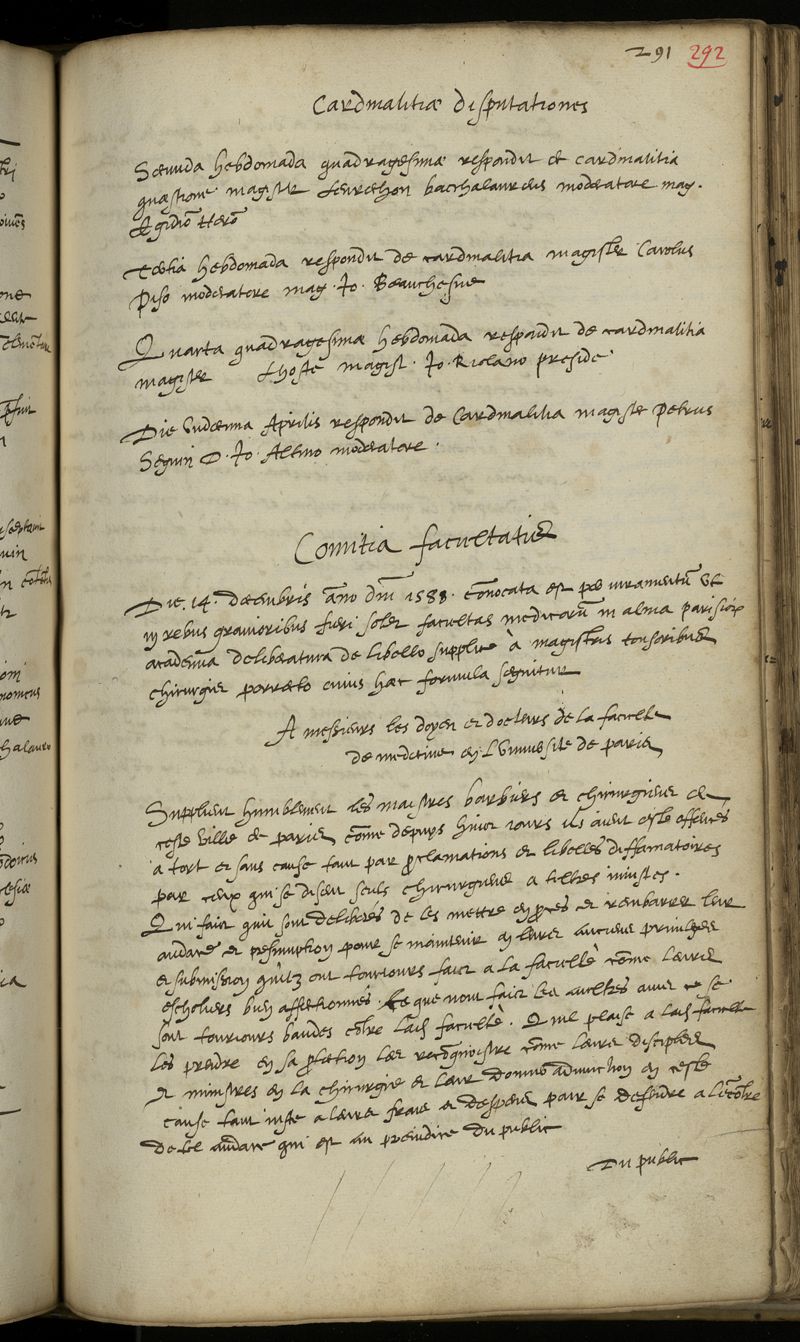 291 292
Cardinalitiæ disputationes
Secunda hebdomada quadragesimæ respondit de cardinalitia
quæstione magister Leurechon bacchalaureus moderatore mag.
Ægidio Heron
Tertia hebdomada respondit de cardinalitia magister Carolus
Piso moderatore mag. Jo. Beauchesne
Quarta quadragesimæ hebdomada respondit de cardinalitia
magister Lhoste magist. Jo. Riolano preside
Die undecima Aprilis respondit de Cardinalitia magister Petrus
Seguin D. Jo. Altino moderatore.
Comitia facultatis
Die. 14. decembris año dñi 1588. cõvocata est per iuramentũ ut
in rebus gravioribus fieri solet facultas medicorũ in alma parisior
academia deliberatura de libello supplice à magistris tonsoribus
chirurgis porrecto cuius hæc formula sequitur
A messieurs les doyen et docteurs de la faculte
de medicine en L'université de paris
Supplient humblement les maistres barbiers et chirurgiens de
ceste ville de paris, cõme depuys huict iours ils aient esté offensés
a tort et sans cause tant par proclamations et libelles diffamatoires
par ceux qui se disent seuls chirurgiens a tiltres iniustes.
Qui faict quil sont deliberés de les mettre en procès et rembarrer leur
audace et presumption pour se maintenir en leurs anciens privileges
et submission quilz ont tousiours faict a la faculté cõme leurs
escholiers bien affectionnés. Ce que nont faict les aultres ains ce se
sont tousiours bandes cõtre lad. faculté. Qu'il plaise a lad. faculté
les prendre en sa protection les recõgnoistre cõme leurs disciples
et ministres en la chirurgie et leur donner adiunction en ceste
cause tant iuste a leurs frais et despens pour se defendre a lecõtre
de tel audace qui est au preiudice du public
Du public